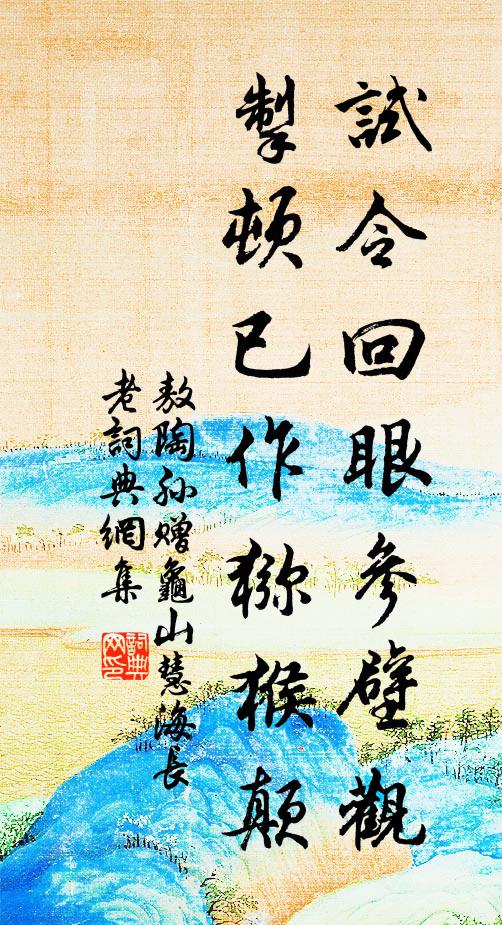 試令回眼參壁觀
掣頓已作獼猴顛
敖陶孫贈龜山慧海長
老詞典網集
詞典
网印